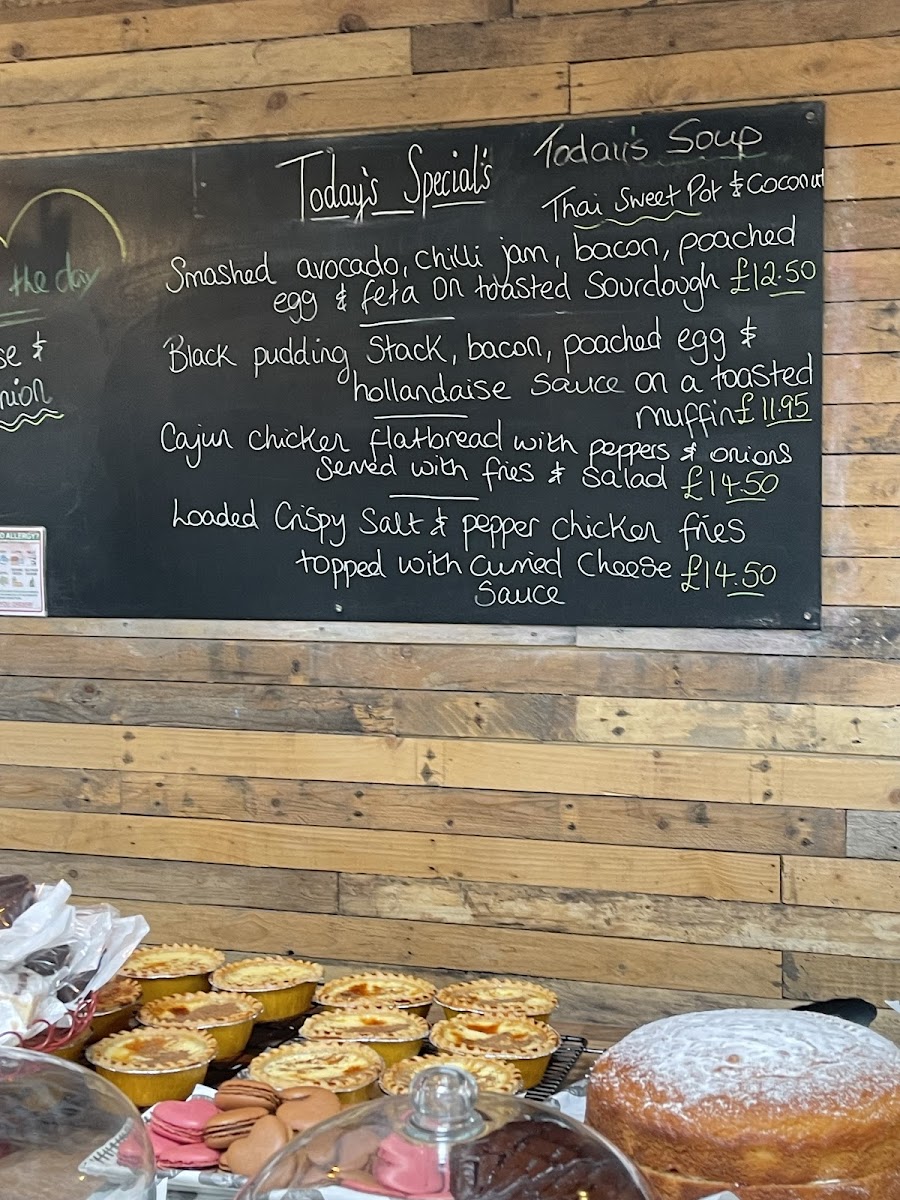 Today's Special's
Today's Soup
Thai Sweet Pot & Coconut
Smashed avocado, chilli jam, bacon, poached
egg & feta on toasted Sourdough £12.50
Black pudding Stack, bacon, poached egg &
hollandaise sauce on a toasted
muffin £11.95
Cajun chicken flatbread with peppers & onions
served with fries & salad £14.50
Loaded Crispy Salt & pepper chicken fries
topped with Curried Cheese £14.50
Sauce
the day
se &
nion
D ALLERGY?